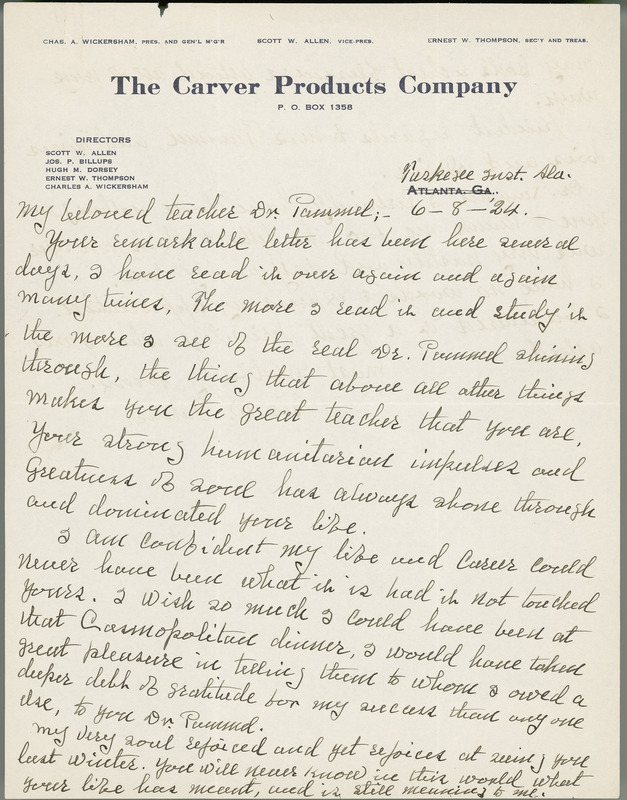 CHAS. A. WICKERSHAM, PRES. AND GEN'L M'G'R SCOTT W. ALLEN, VICE-PRES. ERNEST W. THOMPSON, SEC'Y AND TREAS.
The Carver Products Company
P. O. BOX 1358
DIRECTORS
SCOTT W. ALLEN
JOS. P. BILLUPS
HUGH M. DORSEY
ERNEST W. THOMPSON
CHARLES A. WICKERSHAM
Tuskegee Inst. Ala.
ATLANTA. GA.
My beloved teacher Dr. Pammel;- 6-8-24.-
Your remarkable letter has been here several
days, I have read it over again and again
many times, The more I read it and study it
the more I see of the real Dr. Pammel shining
through, the thing that above all other things
makes you the great teacher that you are,
Your strong humanitarian impulses and
Greatness of soul has always shone through
and dominated your life.
I am confident my life and career could
never have been what it is had it not touched
yours. I wish so much I could have been at
that Cosmopolitan dinner, I would have taken
great pleasure in telling them to whom I owed a
deeper debt of gratitude for my success than any one
else, to you Dr. Pammel.
My very soul rejoiced and yet rejoices at seeing you
last winter. You will never know in this world what
your life has meant, and is still meaning to me.